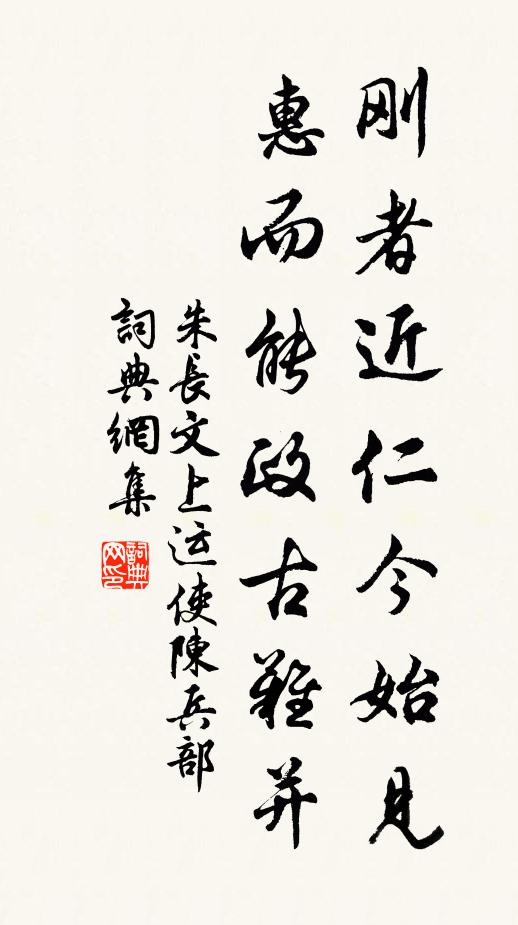 刚者近仁今始見
惠而能政古難并
朱長文上运使陳兵部
詞典網集
詞典网印